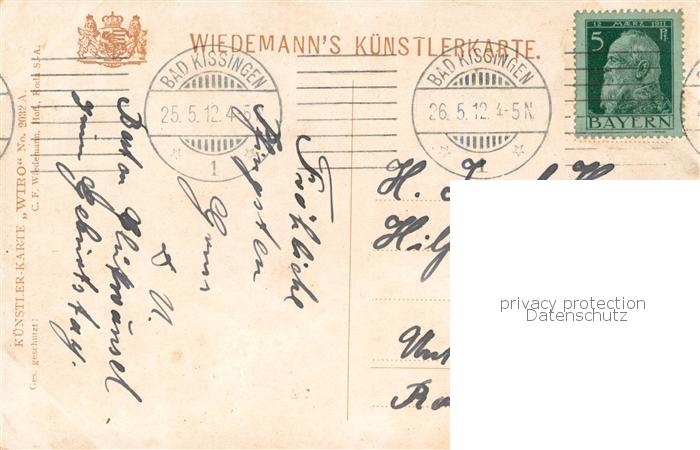 WIEDEMANN'S KÜNSTLERKARTE.
BAD KISSINGEN
25.5.12.4-5N
1
BAD KISSINGEN
26.5.12.4-5N
1
12. MÄRZ 1911
5 Pf.
BAYERN
KÜNSTLER-KARTE „WIRO“ No. 2032 A.
Ges. geschützt:
C. F. Wiedemann, Hofl., Roda S.-A.
Fröhliche
Pfingsten
Besten Glückwunsch
zum Geburtstag.
H.
privacy protection
Datenschutz